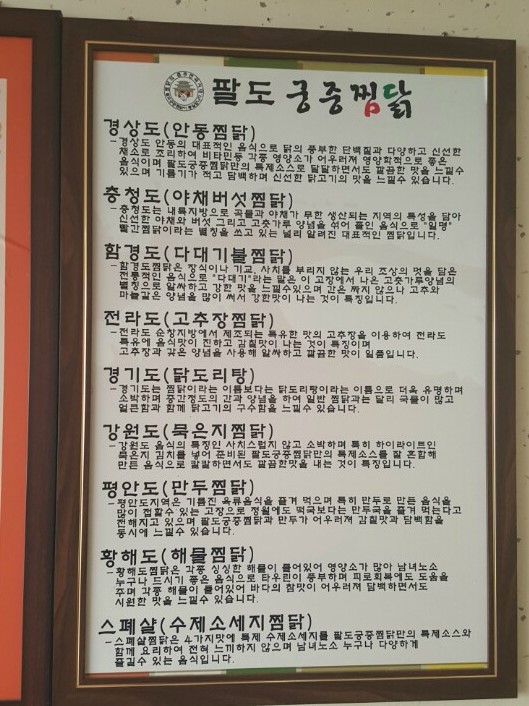 팔도 궁중찜닭
경상도(안동찜닭)
-경상도 안동의 대표적인 음식으로 닭의 풍부한 단백질과 다양하고 신선한
재소로 조리하여 비타민등 각종 영양소가 어우러져 영양학적으로 좋은
음식이며 팔도궁중찜닭만의 특제소스로 달달하면서도 깔끔한 맛을 느낄수
있으며 기름기가 적고 담백하며 신선한 닭고기의 맛을 느낄수 있습니다.
충청도(야채버섯찜닭)
-충청도는 내륙지방으로 곡물과 야채가 무한 생산되는 지역의 특성을 담아
신선한 야채와 버섯 그리고 고춧가루 양념을 섞어 졸인 음식으로 "일명"
빨간찜닭이라는 별칭을 쓰고 있는 널리 알려진 대표적인 찜닭입니다.
함경도(다대기불찜닭)
-함경도찜닭은 장식이나 기교, 사치를 부리지 않는 우리 조상의 멋을 담은
전통적인 음식으로 "다대기"라는 말은 이 고장에서 나온 고춧가루양념의
별칭으로 알싸하고 강한 맛을 느낄수있으며 간은 짜지 않으나 고추와
마늘같은 양념을 많이 써서 강한맛이 나는 것이 특징입니다.
전라도(고추장찜닭)
-전라도 순창지방에서 제조되는 특유한 맛의 고추장을 이용하여 전라도
특유에 음식맛이 진하고 감칠맛이 나는 것이 특징이며
고추장과 갖은 양념을 사용해 알싸하고 깔끔한 맛이 일품입니다.
경기도(닭도리탕)
-경기도는 찜닭이라는 이름보다는 닭도리탕이라는 이름으로 더욱 유명하며
소박하며 중간정도의 간과 양념을 하여 일반 찜닭과는 달리 국물이 많고
얼큰함과 함께 닭고기의 구수함을 느낄수 있습니다.
강원도(묵은지찜닭)
-강원도 음식의 특징인 사치스럽지 않고 소박하며 특히 하이라이트인
묵은지 김치를 넣어 준비된 팔도궁중찜닭만의 특제소스를 잘 혼합해
만든 음식으로 칼칼하면서도 깔끔한맛을 내는 것이 특징입니다.
평안도(만두찜닭)
-평안도지역은 기름진 육류음식을 즐겨 먹으며 특히 만두로 만든 음식을
많이 접할수 있는 고장으로 정월에도 떡국보다는 만두국을 즐겨 먹는다고
전해지고 있으며 팔도궁중찜닭과 만두가 어우러져 감칠맛과 담백함을
동시에 느낄수 있습니다.
황해도(해물찜닭)
-황해도찜닭은 각종 싱싱한 해물이 들어있어 영양소가 많아 남녀노소
누구나 드시기 좋은 음식으로 타우린이 풍부하며 피로회복에도 도움을
주며 각종 해물이 들어있어 바다의 참맛이 어우러져 담백하면서도
시원한 맛을 느낄수 있습니다.
스페샬(수제소세지찜닭)
-스페샬찜닭은 4가지맛에 특제 수제소세지를 팔도궁중찜닭만의 특제소스와
함께 요리하여 전혀 느끼하지 않으며 남녀노소 누구나 다양하게
즐길수 있는 음식입니다.